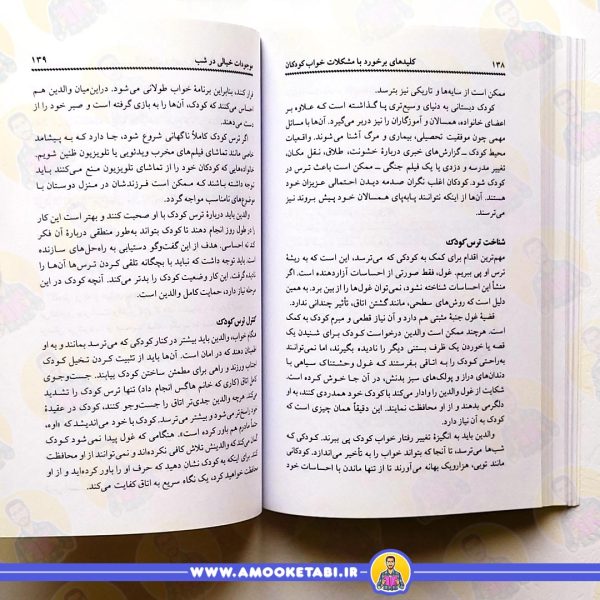 ۱۳۸ کلیدهای برخورد با مشکلات خواب کودکان
ممکن است از سایه‌ها و تاریکی نیز بترسد.
کودک دبستانی به دنیای وسیع‌تری پا گذاشته است که علاوه بر
اعضای خانواده، همسالان و آموزگاران را نیز دربر می‌گیرد. آن‌ها با مسائل
مهمی چون موفقیت تحصیلی، بیماری و مرگ آشنا می‌شوند. واقعیات
محیط کودک ــ گزارش‌های خبری دربارهٔ خشونت، طلاق، نقل مکان،
تغییر مدرسه و دزدی یا یک فیلم جنگی ــ ممکن است باعث ترس در
کودک شود. کودکان اغلب نگران صدمه دیدن احتمالی عزیزان خود
هستند. آن‌ها از اینکه نتوانند پابه‌پای همسالان خود پیش بروند نیز
می‌ترسند.
شناخت ترس کودک
مهم‌ترین اقدام برای کمک به کودکی که می‌ترسد، این است که به ریشهٔ
ترس او پی ببریم. غول، فقط صورتی از احساسات آزاردهنده است. اگر
منشأ این احساسات شناخته نشود، نمی‌توان غول‌ها را از بین برد. به همین
دلیل است که روش‌های سطحی، مانند گشتن اتاق، تأثیر چندانی ندارد.
قضیهٔ غول جنبهٔ مثبتی هم دارد و آن نیاز قطعی و مبرم کودک به کمک
است. هرچند ممکن است والدین درخواست کودک برای شنیدن یک
قصه یا خوردن یک ظرف بستنی دیگر را نادیده بگیرند، اما نمی‌توانند
به‌راحتی کودک را به اتاقی بفرستند که غول وحشتناک سیاهی با
دندان‌های دراز و پولک‌های سبز بدنش، در آن جا خوش کرده است.
شکایت از غول والدین را وادار می‌کند با کودک خود همدردی کنند، به او
دلگرمی بدهند و از او محافظت نمایند. این دقیقاً همان چیزی است که کودک
به آن نیاز دارد.
والدین باید به انگیزهٔ تغییر رفتار خواب کودک پی ببرند. کودکی که
شب‌ها می‌ترسد، تا آنجا که بتواند خواب را به تأخیر می‌اندازد. کودکانی
مانند توبی، هزارویک بهانه می‌آورند تا از تنها ماندن با احساسات خود
موجودات خیالی در شب ۱۳۹
فرار کنند، بنابراین برنامهٔ خواب طولانی می‌شود. دراین‌میان والدین هم
احساس می‌کنند که کودک، آن‌ها را به بازی گرفته است و صبر خود را از
دست می‌دهند.
اگر ترس کودک کاملاً ناگهانی شروع شود، جا دارد که به پیشامد
خاصی مانند تماشای فیلم‌های مخرب ویدئویی یا تلویزیون ظنین شویم.
خانواده‌هایی که کودکان خود را از تماشای تلویزیون منع می‌کنند باید
توجه داشته باشند که ممکن است فرزندشان در منزل دوستان با
موضوع‌های نامناسب مواجه گردد.
والدین باید دربارهٔ ترس کودک با او صحبت کنند و بهتر است این کار
را در طول روز انجام دهند تا کودک بتواند به‌طور منطقی دربارهٔ آن فکر
کند نه احساسی. هدف از این گفت‌وگو دستیابی به راه‌حل‌های سازنده
است. والدین باید توجه داشته باشند که نباید با بچگانه تلقی کردن ترس‌ها آن‌ها را
نادیده گرفت. این کار وضعیت کودک را بدتر می‌کند. آنچه کودک در این
مرحله نیاز دارد، حمایت کامل والدین است.
کنترل ترس کودک
هنگام خواب، والدین باید بیشتر در کنار کودکی که می‌ترسد بمانند و به او
اطمینان دهند که در امان است. آن‌ها باید از تثبیت کردن تخیل کودک
اجتناب ورزند و راهی برای مطمئن ساختن کودک بیابند. جست‌وجوی
کامل اتاق (کاری که خانم هاگس انجام داد) تنها ترس کودک را تشدید
می‌کند. هرچه والدین جدی‌تر اتاق را جست‌وجو کنند، کودک در عقیدهٔ
خود راسخ‌تر می‌شود و بیشتر می‌ترسد. کودک با خود می‌اندیشد که «اوه،
حتماً مادرم هم باور کرده است». هنگامی که غول پیدا نمی‌شود کودک
گمان می‌کند که والدینش تلاش کافی نکرده‌اند و نمی‌توانند از او محافظت
کنند. برای اینکه به کودک نشان دهید که حرف او را باور کرده‌اید و از او
محافظت خواهید کرد، یک نگاه سریع به اتاق کفایت می‌کند.
WWW.AMOOKETABI.IR